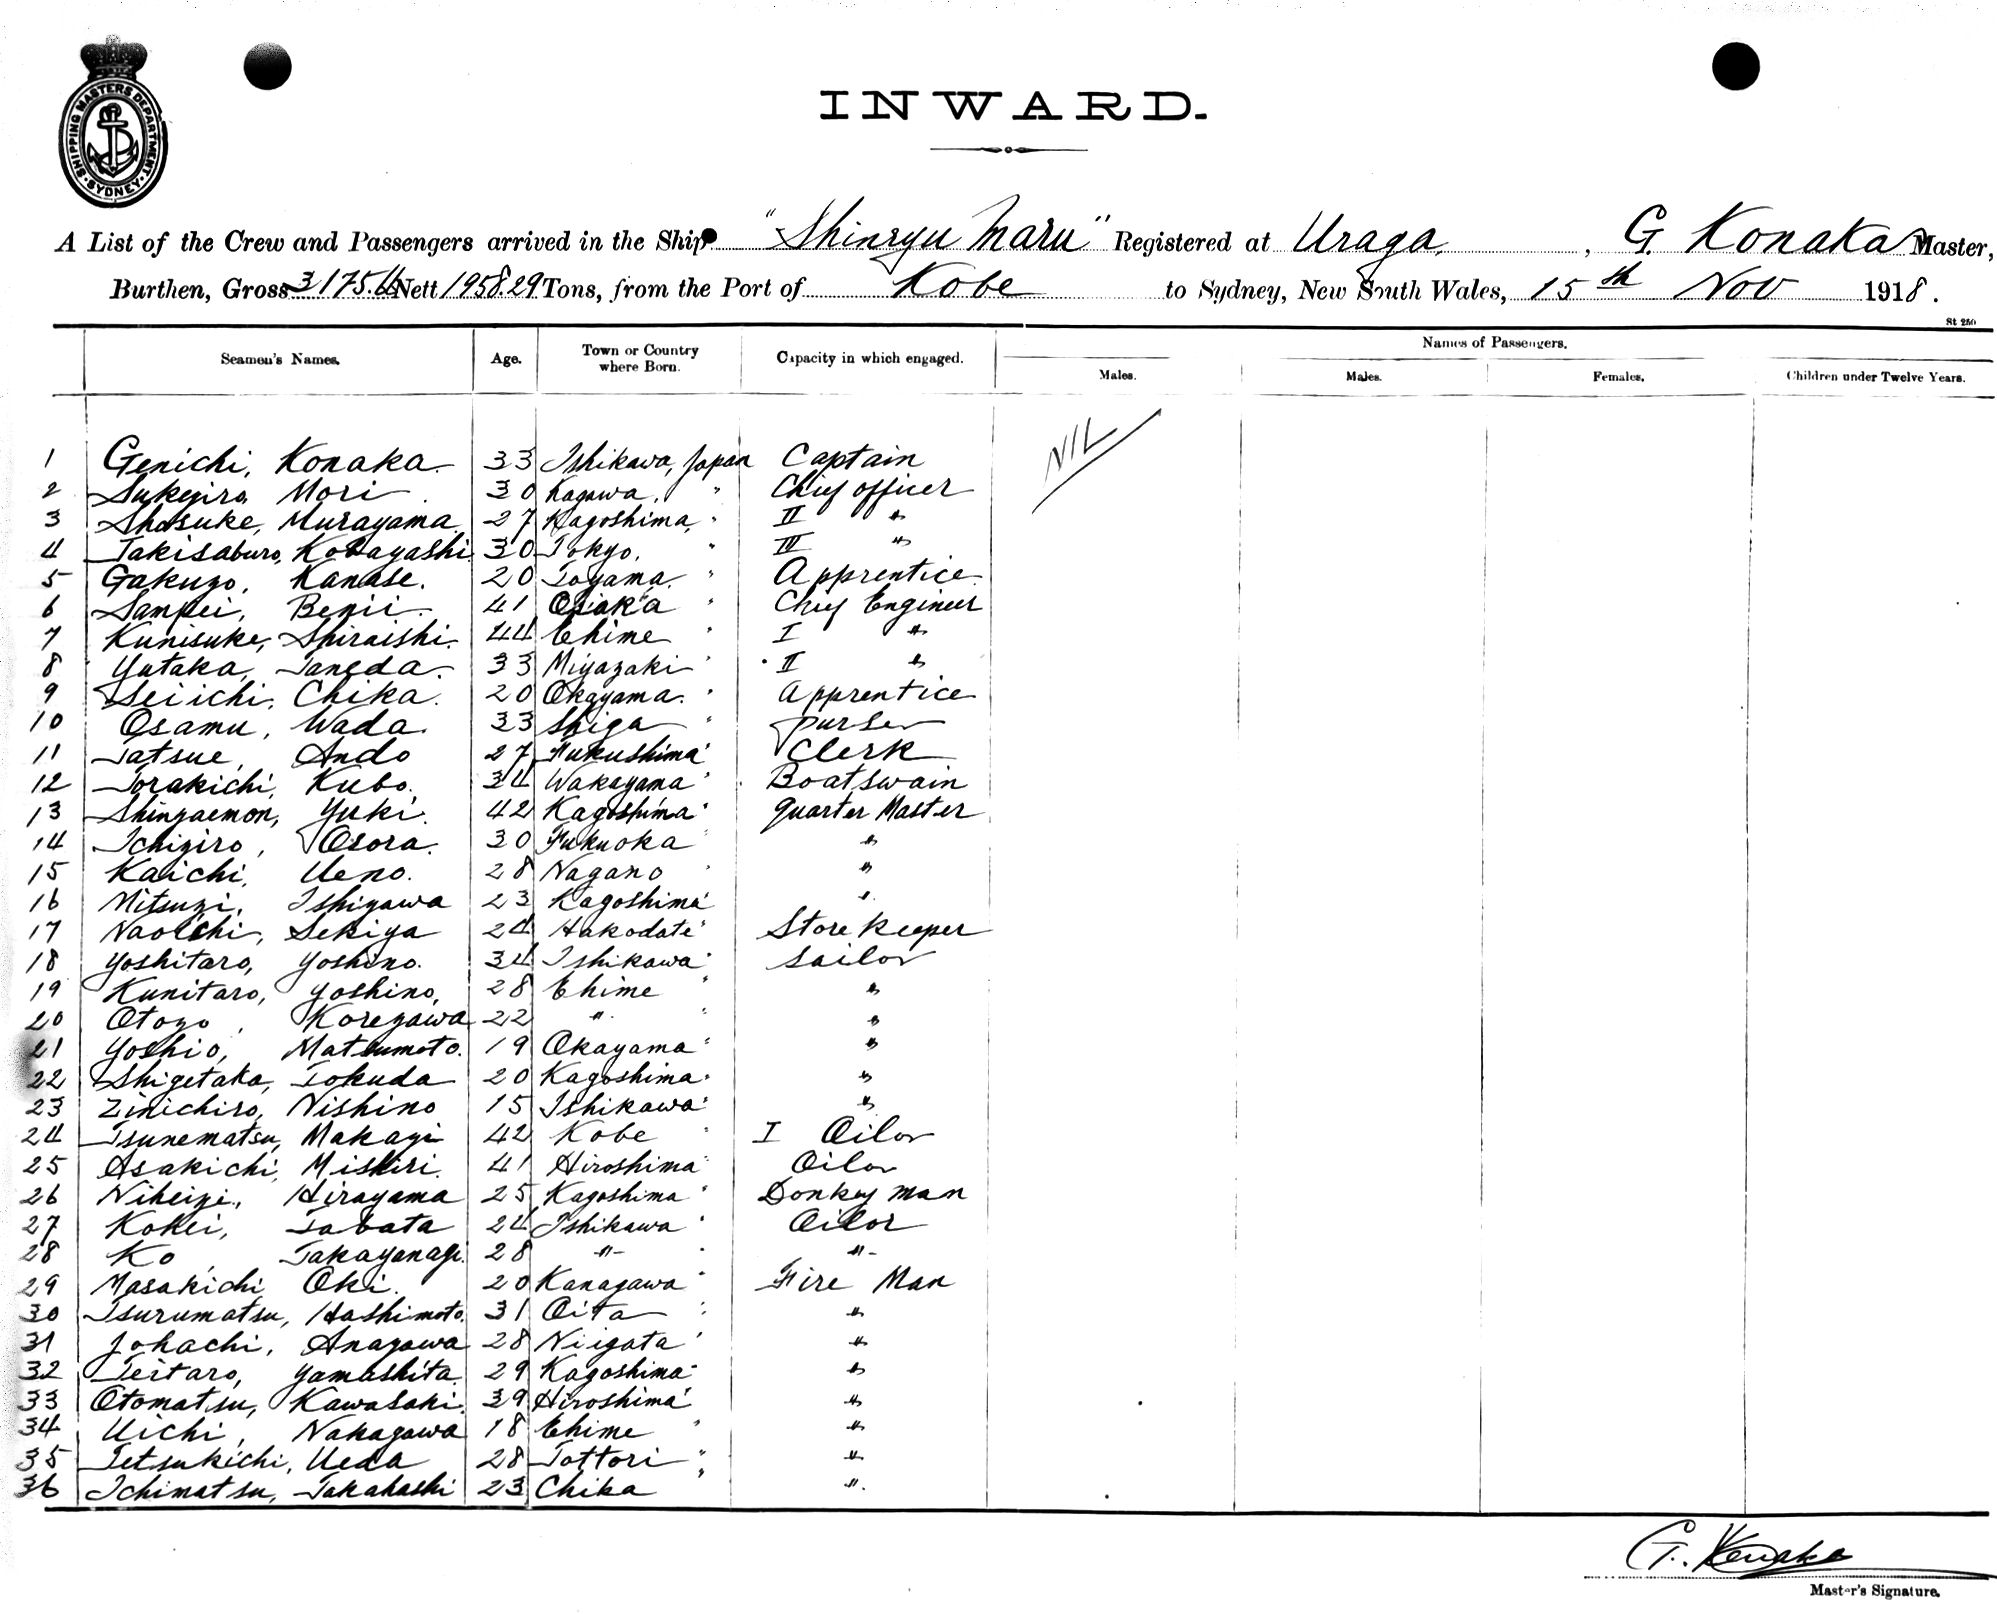 SHIPPING MASTERS DEPARTMENT
SYDNEY
INWARD.
A List of the Crew and Passengers arrived in the Ship "Shinryu Maru" Registered at Uraga, G. Konaka Master,
Burthen, Gross 3175. Nett 1958.29 Tons, from the Port of Kobe to Sydney, New South Wales, 15th Nov 1918.
St 250
Seamen's Names. Age. Town or Country where Born. Capacity in which engaged. Names of Passengers.
Males. Males. Females. Children under Twelve Years.
NIL
1 Genichi, Konaka. 33 Ishikawa, Japan Captain
2 Sukejiro Mori. 30 Kagawa. " Chief officer
3 Shosuke, Murayama. 27 Kagoshima, " II "
4 Takisaburo, Kobayashi 30 Tokyo. " IV "
5 Gakuzo, Kanase. 20 Toyama. " Apprentice
6 Sampei, Benii. 41 Osaka " Chief Engineer
7 Kunisuke, Shiraishi. 44 Ehime " I "
8 Yutaka, Taneda. 33 Miyazaki " II "
9 Seiichi, Chika. 20 Okayama. " Apprentice
10 Osamu, Wada. 33 Shiga " purser
11 Tatsue, Ando 27 Fukushima " Clerk
12 Torakichi, Kubo. 34 Wakayama " Boatswain
13 Shinzaemon, Yuki. 42 Kagoshima " quarter Master
14 Ichijiro, Osora. 30 Fukuoka " "
15 Kaichi, Ueno. 28 Nagano " "
16 Mitsuzi, Ishigawa 23 Kagoshima " "
17 Naoichi, Sekiya 24 Hakodate " Store keeper
18 Yoshitaro, Yoshino. 34 Ishikawa " Sailor
19 Kunitaro, Yoshino, 28 Ehime " "
20 Otozo, Korezawa 22 " " "
21 Yoshio, Matsumoto. 19 Okayama " "
22 Shigetaka, Tokuda 20 Kagoshima " "
23 Zinichiro, Nishino 15 Ishikawa " "
24 Tsunematsu, Makagi 42 Kobe " I Oilor
25 Asakichi, Mishiri. 41 Hiroshima " Oilor
26 Niheizi, Hirayama 25 Kagoshima " Donkey man
27 Kokei, Tabata 24 Ishikawa " Oilor
28 Ko, Takayanagi. 28 " " "
29 Masakichi Oki. 20 Kanagawa " Fire Man
30 Tsurumatsu, Hashimoto. 31 Oita " "
31 Johachi, Anazawa 28 Niigata " "
32 Teitaro, Yamashita. 29 Kagoshima " "
33 Otomatsu, Kawasaki. 39 Hiroshima " "
34 Uichi, Nakagawa 18 Ehime " "
35 Tetsukichi, Ueda 28 Tottori " "
36 Ichimatsu, Takahashi 23 Chika " "
G. Konaka
Master's Signature.